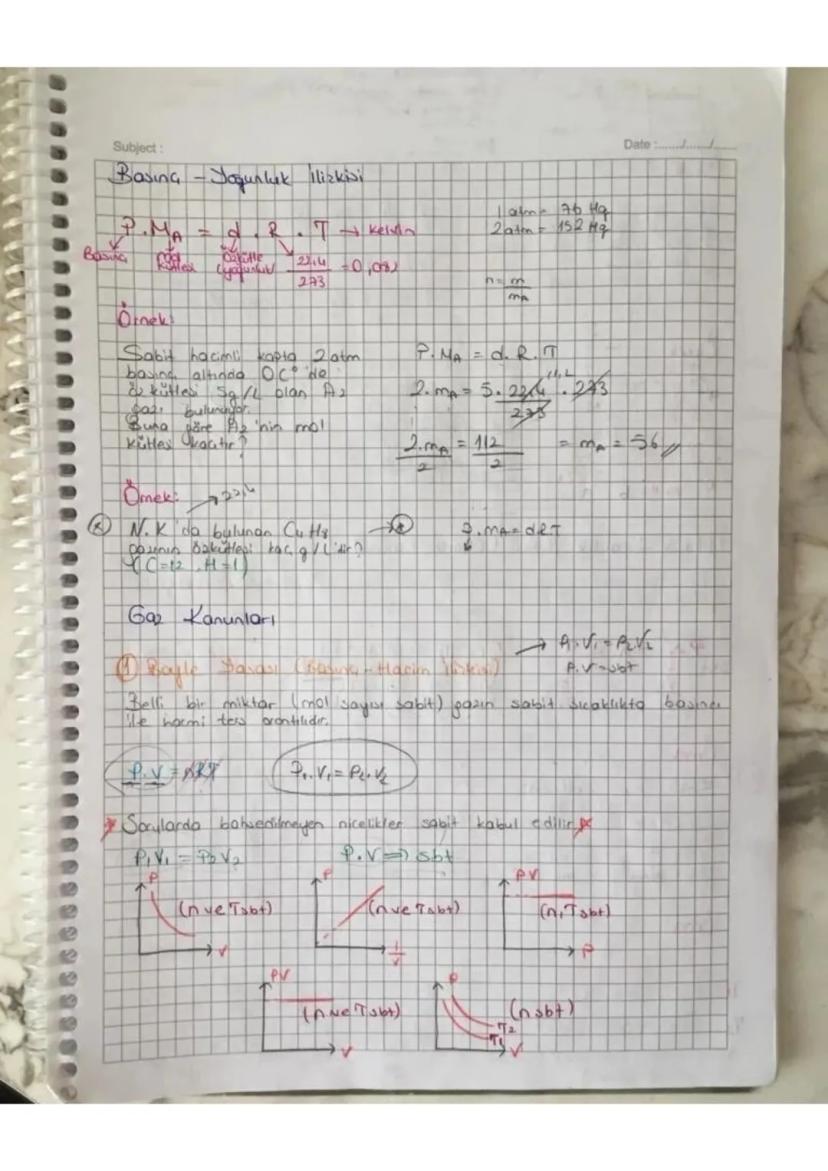 Subject :
Date :....../....../......
Basınç - Yoğunluk İlişkisi
1 atm = 76 Hg
2 atm = 152 Hg
P.MA = d.R.T → Kelvin
Basınç mol kütlesi özkütle (yoğunluk) 22,4/273 = 0,082
n = m/mA
Örnek:
Sabit hacimli kapta 2 atm
basınç altında 0C° de
öz kütlesi 5g/L olan A2
gazı bulunuyor.
Buna göre A2'nin mol
kütlesi kaçtır?
P.MA = d.R.T
2.mA = 5.22,4/273 . 273
2.mA/2 = 112/2 = mA = 56
Örnek: → 22,4
N.K'da bulunan C4H8
gazının özkütlesi kaç g/L'dir?
(C=12, H=1)
P.mA = dRT
Gaz Kanunları
1 Boyle Yasası (Basınç-Hacim İlişkisi)
→ P1.V1 = P2V2
P.V = sbt
Belli bir miktar (mol sayısı sabit) gazın sabit sıcaklıkta basıncı
ile hacmi ters orantılıdır.
P.V = nRT
P1.V1 = P2.V2
* Sorularda bahsedilmeyen nicelikler sabit kabul edilir *
P1V1 = P2V2 P.V ⇒ sbt
P (n ve T sbt) V
P (n ve T sbt) 1/V
PV (n, T sbt) P
PV (n ve T sbt) V
P (n sbt) T2 T1 V